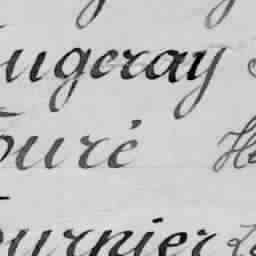 ugeray
ouré He
ournier